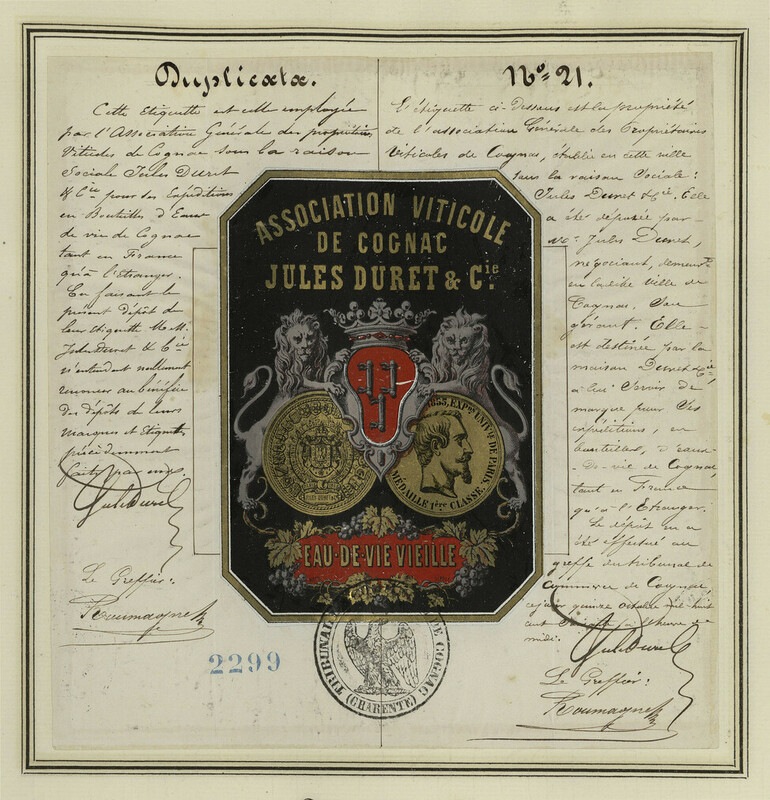 Duplicata.
Cette Etiquette est celle employée
par l'Association Générale des propriétaires
Viticoles de Cognac sous la raison
Sociale Jules Duret
& Cie pour ses Expéditions
en Bouteilles d'Eaux
de vie de Cognac
tant en France
qu'à l'Etranger.
En faisant le
présent dépôt de
leur étiquette M.M.
Jules Duret & Cie
n'entendent nullement
renoncer au bénéfice
des dépôts de leurs
marques et Etiquettes
précédemment
faits par eux.
Jules Duret
Le Greffier:
Roumagne
2299
No= 21.
L'étiquette ci-Dessous est la propriété
de l'association Générale des Propriétaires
Viticoles de Cognac, établie en cette ville
sous la raison Sociale:
Jules Duret & Cie. Elle
a été déposée par
Mr. Jules Duret,
négociant, demeurt
en ladite ville de
Cognac. Son
gérant. Elle
est destinée par la
maison Duret & Cie
à lui Servir de
marque pour Ses
expéditions, en
bouteilles, d'eaux-
de-vie de Cognac,
tant en France
qu'à l'Etranger.
Le dépôt en a
été effectué au
greffe du tribunal de
Commerce de Cognac
ce jour quinze octobre mil huit
cent
midi.
Jules Duret
Le Greffier:
Roumagne
ASSOCIATION VITICOLE
DE COGNAC
JULES DURET & Cie.
1855, EXPon UNIVlle DE PARIS.
MÉDAILLE 1ère CLASSE.
EAU-DE-VIE VIEILLE
TRIBUNAL DE COGNAC
(CHARENTE)